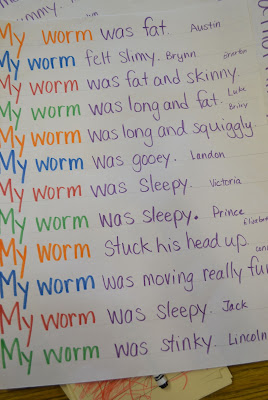 My worm was fat. Austin
My worm felt slimy. Brynn
My worm was fat and skinny.
My worm was long and fat. Luke
Briley
My worm was long and squiggly.
My worm was gooey. Landon
My worm was sleepy. Victoria
My worm was sleepy. Prince
My worm stuck his head up.
My worm was moving really
My worm was sleepy. Jack
My worm was stinky. Lincoln